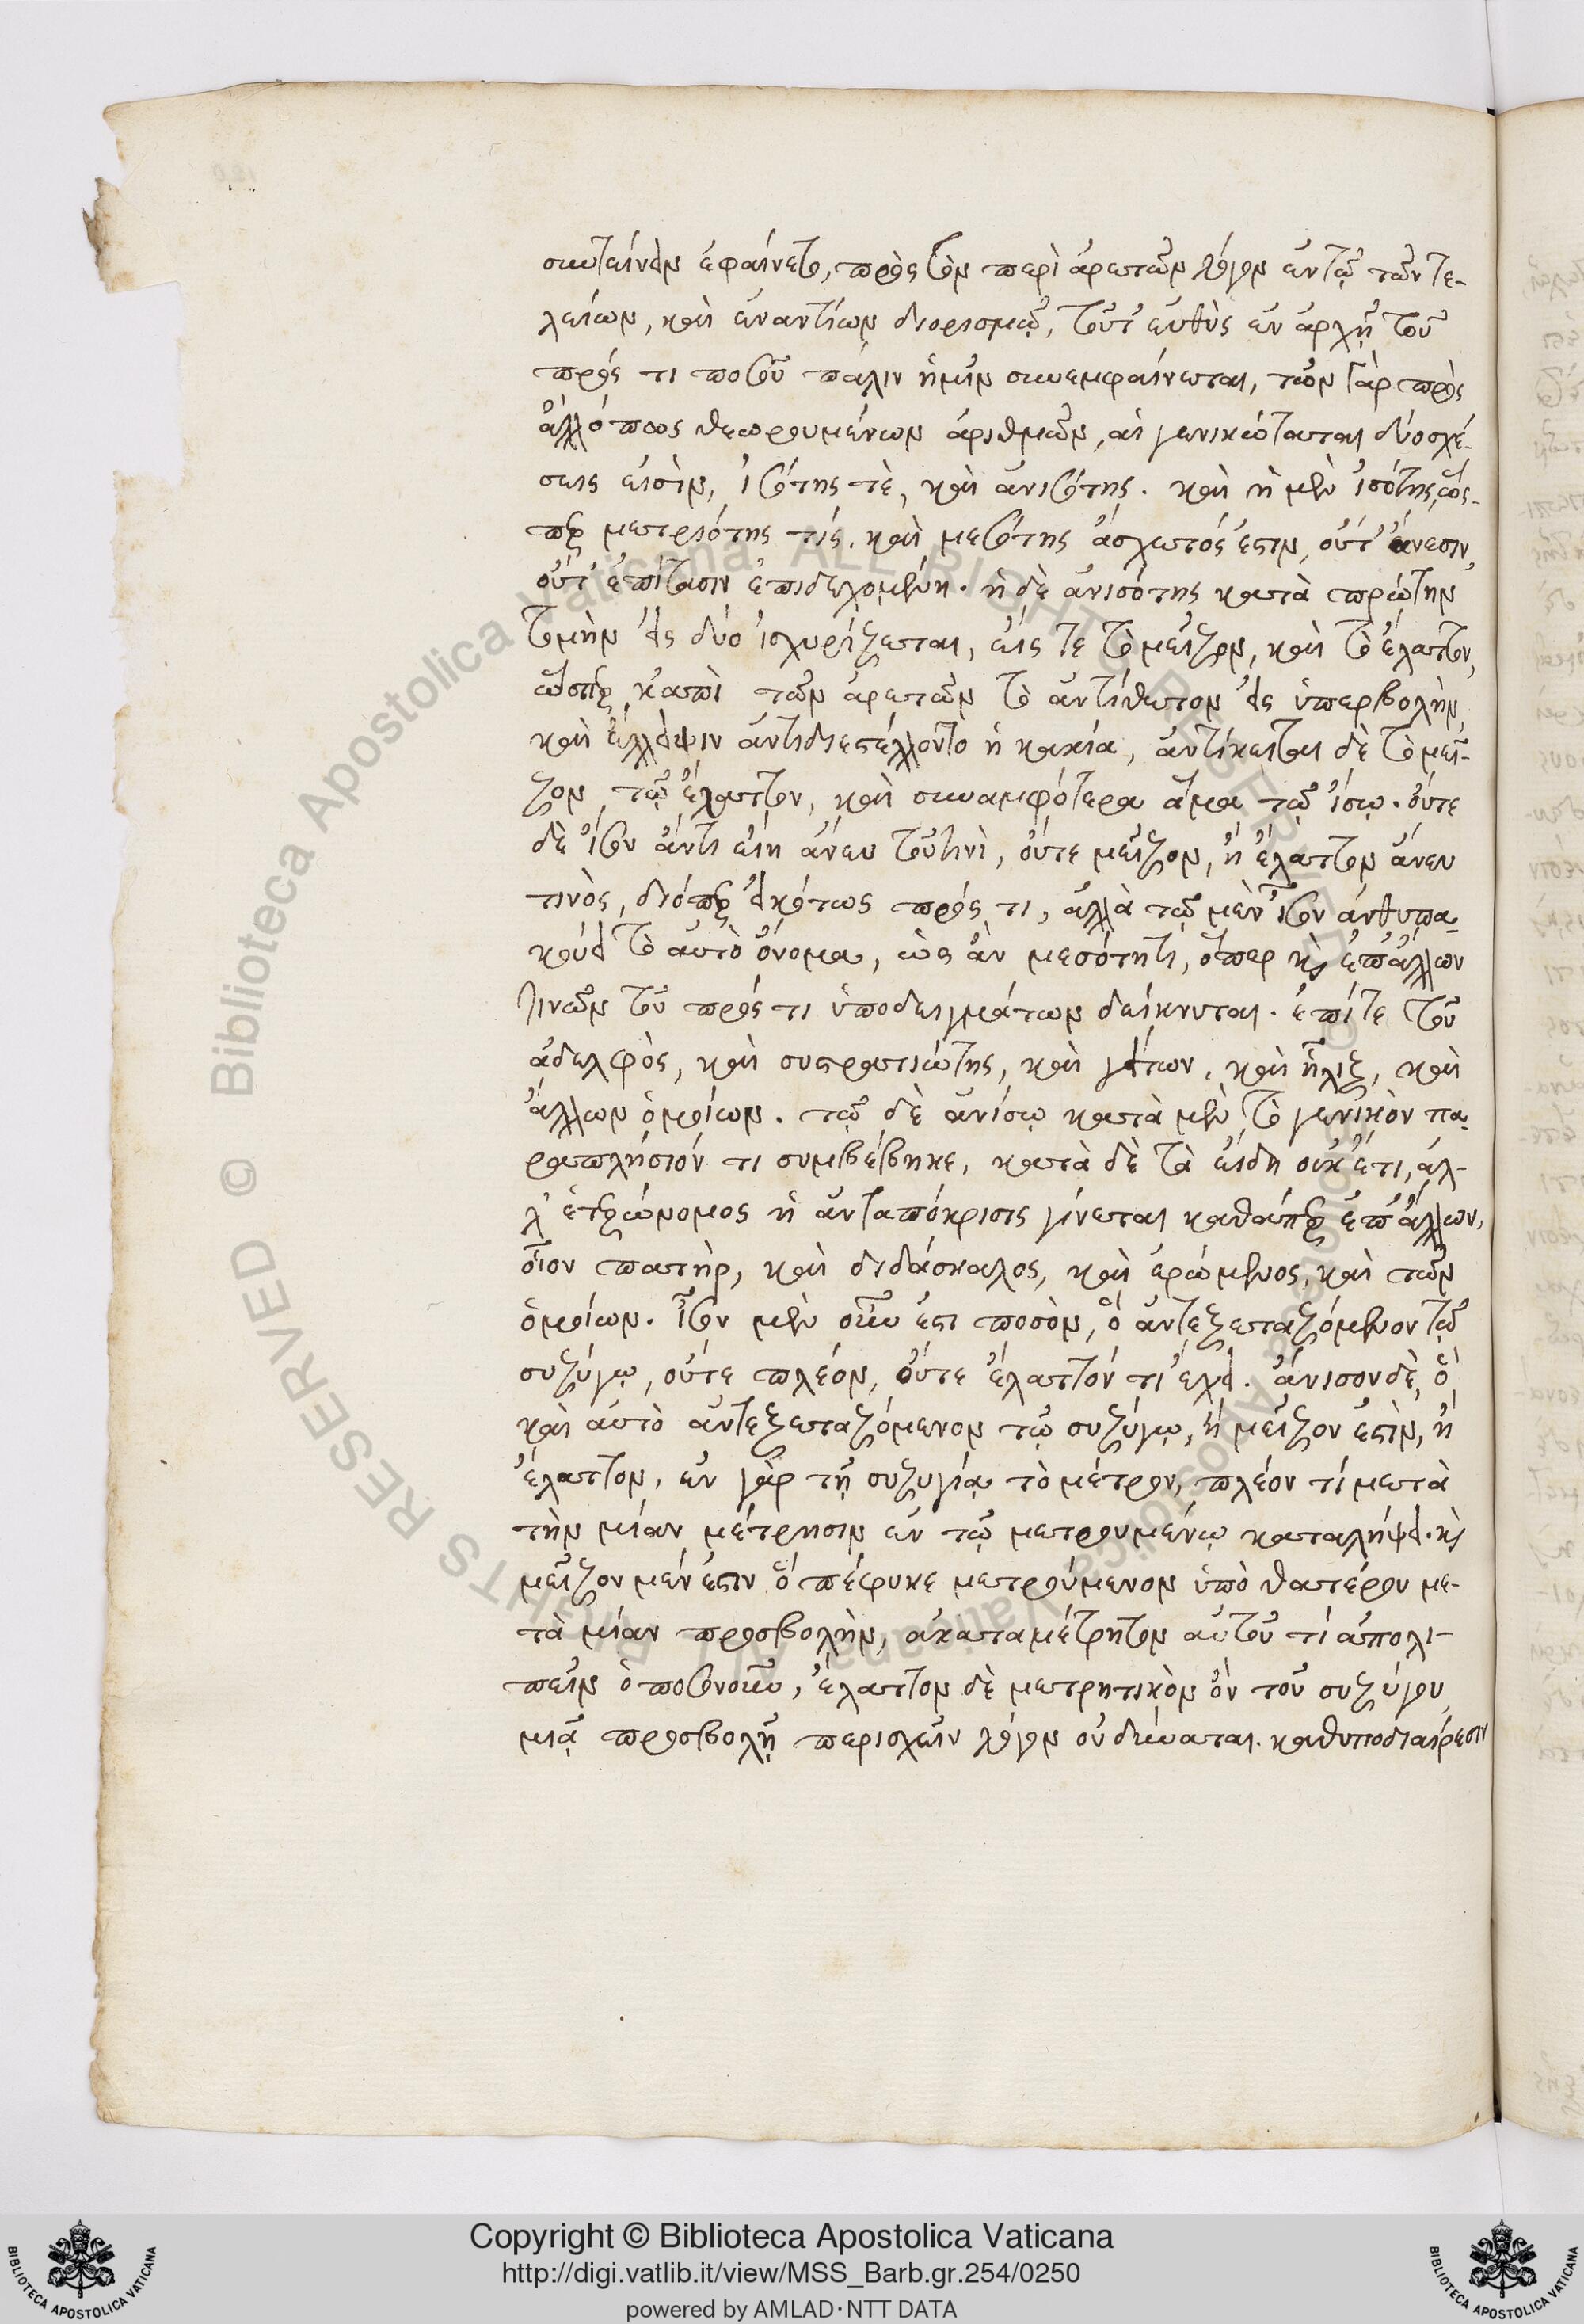 συντείνειν ἐφαίνετο, πρὸς τὸν περὶ ἀρετῶν λόγον ἐν τῷ τῶν τε-
λείων, καὶ ἐναντίων διορισμῷ, τοῦτ' εὐθὺς ἐν ἀρχῇ τοῦ
πρός τι ποσοῦ πάλιν ἡμῖν συνεμφαίνεται, τῶν γὰρ πρὸς
ἄλλό πως θεωρουμένων ἀριθμῶν, αἱ γενικώταται δύο σχέ-
σεις εἰσὶν, ἰσότης τὲ, καὶ ἀνισότης. καὶ ἡ μὲν ἰσότης, ὥσ-
περ μετριότης τίς, καὶ μεσότης ἄσχετός ἐστιν, οὔτ' ἄνεσιν,
οὔτ' ἐπίτασιν ἐπιδεχομένη. ἡ δὲ ἀνισότης κατὰ πρώτην
τομὴν εἰς δύο ἰσχυρίζεται, εἴς τε τὸ μεῖζον, καὶ τὸ ἔλαττον,
ὥσπερ κἀπὶ τῶν ἀρετῶν τὸ ἀντίθετον εἰς ὑπερβολὴν,
καὶ ἔλλειψιν ἀντιδιεστέλλοντο ἡ κακία, ἀντίκειται δὲ τὸ μεῖ-
ζον τῷ ἔλαττον, καὶ συναμφότερα ἅμα τῷ ἴσῳ. οὔτε
δὲ ἴσον ἄντι εἴη ἄνευ τοῦ τινὶ, οὔτε μεῖζον, ἢ ἔλαττον ἄνευ
τινὸς, διόπερ εἰκότως πρός τι, ἀλλὰ τῷ μὲν ἴσον ἀνθυπα-
κούει τὸ αὐτὸ ὄνομα, ὡς ἂν μεσότητι, ὅπερ κὶ ἐπ' ἄλλων
τινῶν τοῦ πρός τι ὑποδειγμάτων δείκνυται. ἐπί τε τοῦ
ἀδελφὸς, καὶ συστρατιώτης, καὶ γείτων, καὶ ἧλιξ, καὶ
ἄλλων ὁμοίων. τῷ δὲ ἀνίσῳ κατὰ μὲν τὸ γενικὸν πα-
ραπλήσιόν τι συμβέβηκε, κατὰ δὲ τὰ εἴδη οὐκ' ἔτι, ἀλ-
λ' ἑτερώνομος ἡ ἀνταπόκρισις γίνεται καθάπερ ἐπ' ἄλλων,
οἷον πατὴρ, καὶ διδάσκαλος, καὶ ἐρώμενος, καὶ τῶν
ὁμοίων. ἴσον μὲν οὖν ἐστι ποσὸν, ὃ ἀντεξεταζόμενον τῷ
συζύγῳ, οὔτε πλέον, οὔτε ἔλαττόν τι ἔχει. ἄνισον δὲ, ὃ
καὶ αὐτὸ ἀντεξεταζόμενον τῷ συζύγῳ, ἢ μεῖζον ἐστὶν, ἢ
ἔλαττον, ἐν γὰρ τῇ συζυγίᾳ τὸ μέτρον, πλέον τί μετὰ
τὴν μίαν μέτρησιν ἐν τῷ μετρουμένῳ καταλήψει. κὶ
μεῖζον μέν ἐστιν ὃ πέφυκε μετρούμενον ὑπὸ θατέρου με-
τὰ μίαν προσβολὴν, ἀκαταμέτρητον αὐτοῦ τί ἀπολι-
πεῖν ὁποσονοῦν, ἔλαττον δὲ μετρητικὸν ὂν τοῦ συζύγου
μιᾷ προσβολῇ περισχεῖν λόγον οὐ δύναται. καθυποδιαίρεσιν